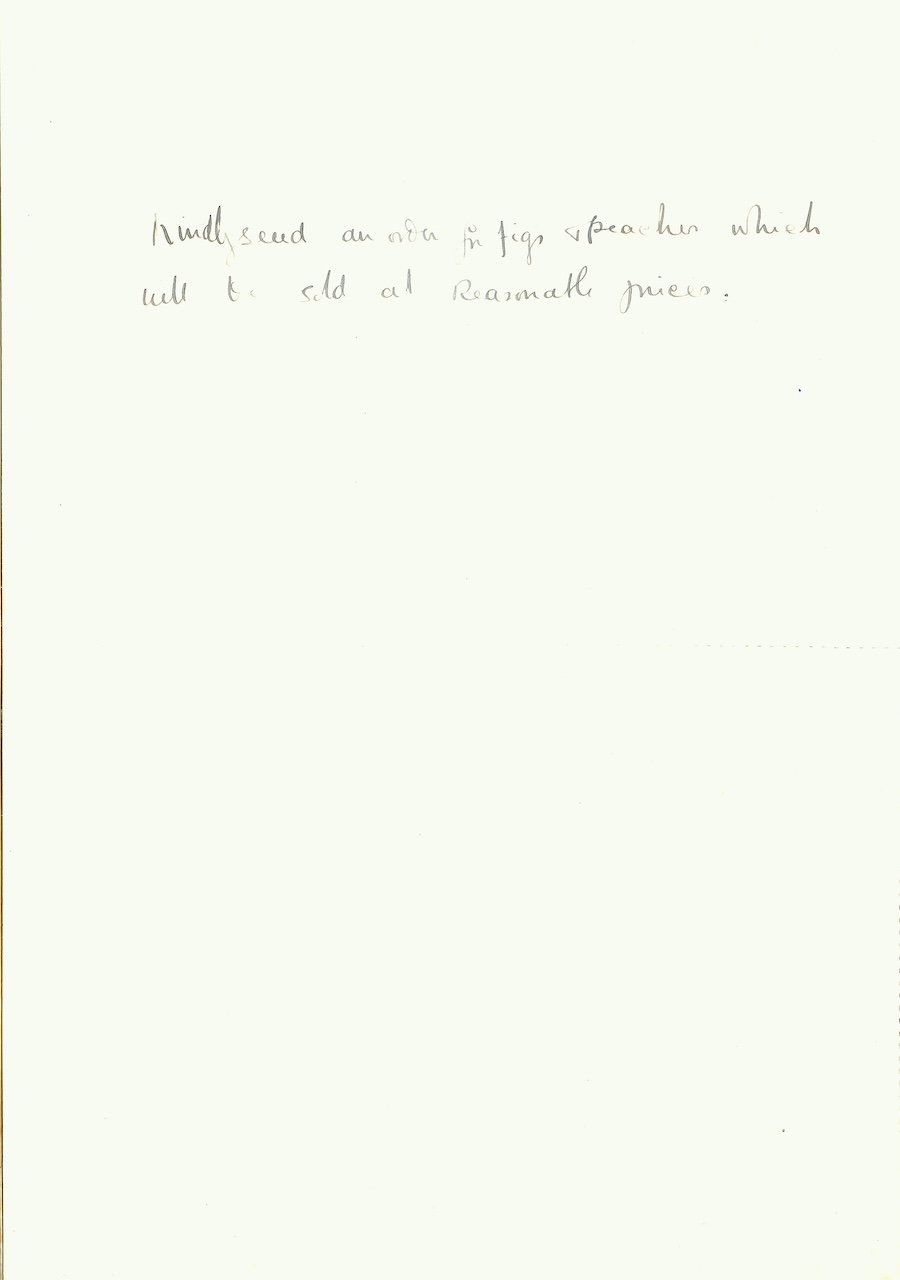 Kindly send an order for figs & peaches which
will be sold at Reasonable prices.